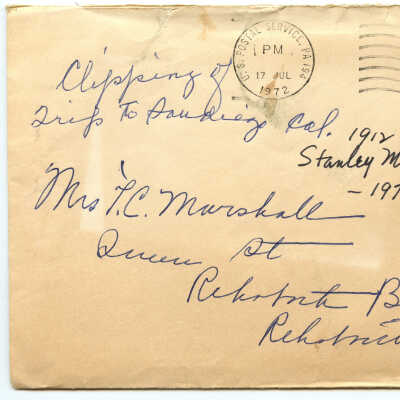 U.S. POSTAL SERVICE, PA 194
PM
17 JUL
1972
Clipping of
Trip to Sandiego Cal.
1912
Stanley M
- 197
Mrs T.C. Marshall
Queen St
Rehoboth B
Rehobo